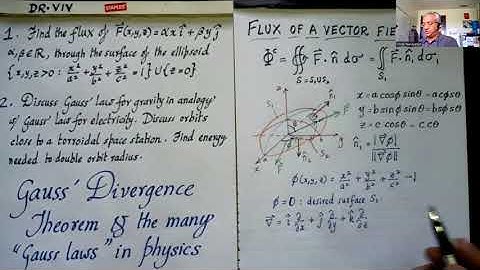 DR·VIV
STAPLES
1. Find the flux of F(x,y,z)=αx î + βy ĵ
α,β∈ℝ, through the surface of the ellipsoid
{x,y,z>0 : x²/a² + y²/b² + z²/c² = 1} ∪ {z=0}
2. Discuss Gauss' law for gravity in analogy
of Gauss' law for electricity. Discuss orbits
close to a torroidal space station. Find energy
needed to double orbit radius.
Gauss' Divergence
Theorem & the many
"Gauss laws" in physics
FLUX OF A VECTOR FIE
S = S₁∪S₂
x = a cosϕ sinθ = a cϕ sθ
y = b sinϕ sinθ = b sϕ sθ
z = c cosθ = c cθ
ϕ(x,y,z) = x²/a² + y²/b² + z²/c² − 1
ϕ = 0 : desired surface S₁
∇ = î ∂/∂x + ĵ ∂/∂y + k̂ ∂/∂z